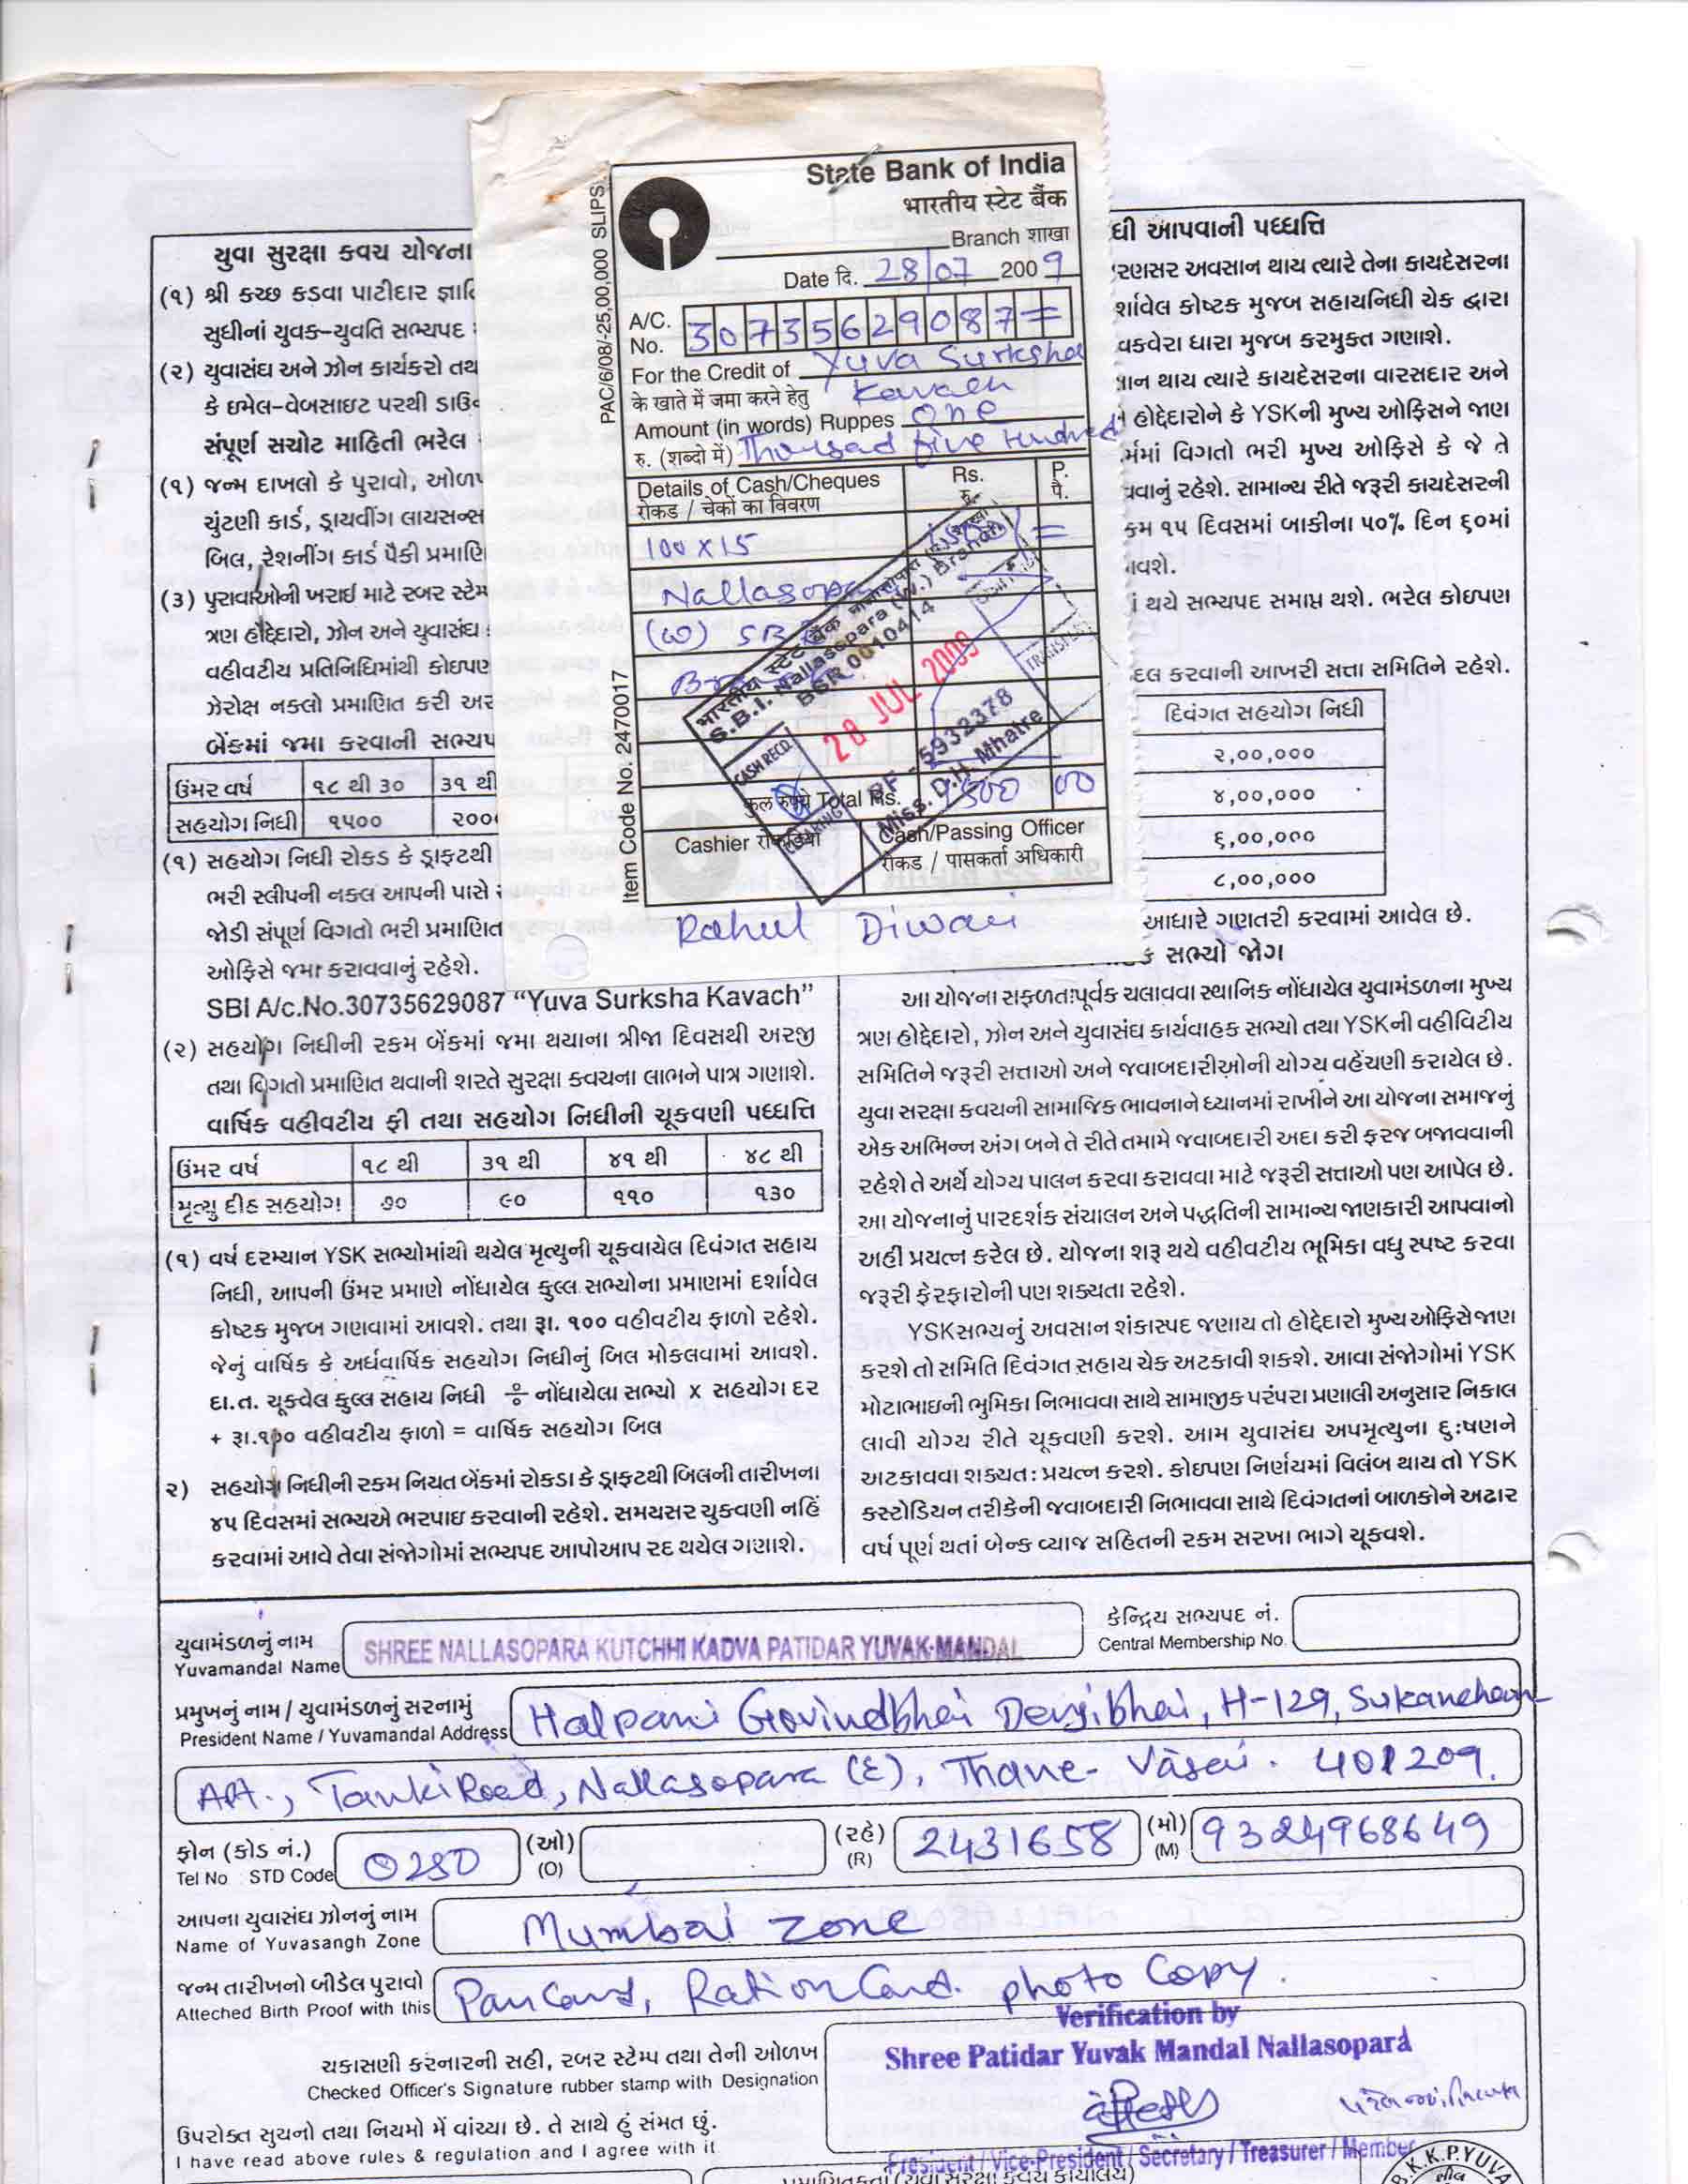 State Bank of India
भारतीय स्टेट बैंक
Branch शाखा
Date दि. 28/07 2009
A/C. No. 30735629087=
For the Credit of Yuva Surksha
के खाते में जमा करने हेतु Kavach
Amount (in words) Ruppes One
रु. (शब्दो में) Thousad five Hundred
Details of Cash/Cheques Rs. P.
रोकड / चेकों का विवरण रु. पै.
100 X 15
Nallasopara
(W) SBI
भारतीय स्टेट बैंक
S.B.I. Nallasopara (W.) Branch
BSR 0010414
28 JUL 2009
CASH RECD.
TRANSFER
CLEARING
PF - 5932378
Miss. D.H. Mhatre
कुल रुपये Total Rs. 1500 00
Cashier रोकडिया
Cash/Passing Officer
रोकड / पासकर्ता अधिकारी
PAC/6/08/-25,00,000 SLIPS.
Item Code No. 2470017
Rahul Diwani
યુવા સુરક્ષા કવચ યોજના
(૧) શ્રી કચ્છ કડવા પાટીદાર
સુધીનાં યુવક-યુવતિ સભ્યપદ
(૨) યુવાસંઘ અને ઝોન કાર્યકરો
કે ઇમેલ-વેબસાઇટ પરથી
સંપૂર્ણ સચોટ માહિતી ભરેલ
(૧) જન્મ દાખલો કે પુરાવો,
ચુંટણી કાર્ડ, ડ્રાયવીંગ લાયસન્સ
બિલ, રેશનીંગ કાર્ડ પૈકી
(૩) પુરાવાઓની ખરાઈ માટે રબર
ત્રણ હોદ્દેદારો, ઝોન અને યુવાસંઘ
વહીવટીય પ્રતિનિધિમાંથી કોઇપણ
ઝેરોક્ષ નકલો પ્રમાણિત કરી
બેંકમાં જમા કરવાની
ઉંમર વર્ષ ૧૮ થી ૩૦ ૩૧ થી
સહયોગ નિધી ૧૫૦૦
(૧) સહયોગ નિધી રોકડ કે ડ્રાફટથી
ભરી સ્લીપની નકલ આપની પાસે
જોડી સંપૂર્ણ વિગતો ભરી પ્રમાણિત
ઓફિસે જમા કરાવવાનું રહેશે.
SBI A/c.No.30735629087 “Yuva Surksha Kavach”
(૨) સહયોગ નિધીની રકમ બેંકમાં જમા થયાના ત્રીજા દિવસથી અરજી
તથા વિગતો પ્રમાણિત થવાની શરતે સુરક્ષા કવચના લાભને પાત્ર ગણાશે.
વાર્ષિક વહીવટીય ફી તથા સહયોગ નિધીની ચૂકવણી પધ્ધતિ
ઉંમર વર્ષ ૧૮ થી ૩૧ થી ૪૧ થી ૪૮ થી
મૃત્યુ દીઠ સહયોગ ૭૦ ૯૦ ૧૧૦ ૧૩૦
(૧) વર્ષ દરમ્યાન YSK સભ્યોમાંથી થયેલ મૃત્યુની ચૂકવાયેલ દિવંગત સહાય
નિધી, આપની ઉંમર પ્રમાણે નોંધાયેલ કુલ્લ સભ્યોના પ્રમાણમાં દર્શાવેલ
કોષ્ટક મુજબ ગણવામાં આવશે. તથા રૂા. ૧૦૦ વહીવટીય ફાળો રહેશે.
જેનું વાર્ષિક કે અર્ધવાર્ષિક સહયોગ નિધીનું બિલ મોકલવામાં આવશે.
દા.ત. ચૂકવેલ કુલ્લ સહાય નિધી ÷ નોંધાયેલા સભ્યો x સહયોગ દર
+ રૂા.૧૦૦ વહીવટીય ફાળો = વાર્ષિક સહયોગ બિલ
૨) સહયોગ નિધીની રકમ નિયત બેંકમાં રોકડા કે ડ્રાફટથી બિલની તારીખના
૪૫ દિવસમાં સભ્યએ ભરપાઇ કરવાની રહેશે. સમયસર ચુકવણી નહિં
કરવામાં આવે તેવા સંજોગોમાં સભ્યપદ આપોઆપ રદ થયેલ ગણાશે.
આપવાની પધ્ધતિ
અવસાન થાય ત્યારે તેના કાયદેસરના
કોષ્ટક મુજબ સહાયનિધી ચેક દ્વારા
ધારા મુજબ કરમુક્ત ગણાશે.
થાય ત્યારે કાયદેસરના વારસદાર અને
હોદ્દેદારોને કે YSKની મુખ્ય ઓફિસને જાણ
વિગતો ભરી મુખ્ય ઓફિસે કે જે તે
રહેશે. સામાન્ય રીતે જરૂરી કાયદેસરની
૧૫ દિવસમાં બાકીના ૫૦% દિન ૬૦માં
થયે સભ્યપદ સમાપ્ત થશે. ભરેલ કોઇપણ
કરવાની આખરી સત્તા સમિતિને રહેશે.
દિવંગત સહયોગ નિધી
૨,૦૦,૦૦૦
૪,૦૦,૦૦૦
૬,૦૦,૦૦૦
૮,૦૦,૦૦૦
આધારે ગણતરી કરવામાં આવેલ છે.
સભ્યો જોગ
આ યોજના સફળતાપૂર્વક ચલાવવા સ્થાનિક નોંધાયેલ યુવામંડળના મુખ્ય
ત્રણ હોદ્દેદારો, ઝોન અને યુવાસંઘ કાર્યવાહક સભ્યો તથા YSKની વહીવિટીય
સમિતિને જરૂરી સત્તાઓ અને જવાબદારીઓની યોગ્ય વહેંચણી કરાયેલ છે.
યુવા સરક્ષા કવચની સામાજિક ભાવનાને ધ્યાનમાં રાખીને આ યોજના સમાજનું
એક અભિન્ન અંગ બને તે રીતે તમામે જવાબદારી અદા કરી ફરજ બજાવવાની
રહેશે તે અર્થે યોગ્ય પાલન કરવા કરાવવા માટે જરૂરી સત્તાઓ પણ આપેલ છે.
આ યોજનાનું પારદર્શક સંચાલન અને પદ્ધતિની સામાન્ય જાણકારી આપવાનો
અહીં પ્રયત્ન કરેલ છે. યોજના શરૂ થયે વહીવટીય ભૂમિકા વધુ સ્પષ્ટ કરવા
જરૂરી ફેરફારોની પણ શક્યતા રહેશે.
YSKસભ્યનું અવસાન શંકાસ્પદ જણાય તો હોદ્દેદારો મુખ્ય ઓફિસે જાણ
કરશે તો સમિતિ દિવંગત સહાય ચેક અટકાવી શકશે. આવા સંજોગોમાં YSK
મોટાભાઇની ભુમિકા નિભાવવા સાથે સામાજીક પરંપરા પ્રણાલી અનુસાર નિકાલ
લાવી યોગ્ય રીતે ચૂકવણી કરશે. આમ યુવાસંઘ અપમૃત્યુના દુઃષણને
અટકાવવા શક્યતઃ પ્રયત્ન કરશે. કોઇપણ નિર્ણયમાં વિલંબ થાય તો YSK
કસ્ટોડિયન તરીકેની જવાબદારી નિભાવવા સાથે દિવંગતનાં બાળકોને અઢાર
વર્ષ પૂર્ણ થતાં બેન્ક વ્યાજ સહિતની રકમ સરખા ભાગે ચૂકવશે.
યુવામંડળનું નામ
Yuvamandal Name SHREE NALLASOPARA KUTCHHI KADVA PATIDAR YUVAK-MANDAL
કેન્દ્રિય સભ્યપદ નં.
Central Membership No.
પ્રમુખનું નામ / યુવામંડળનું સરનામું
President Name / Yuvamandal Address Halpani Govindbhai Devjibhai, H-129, Sukanchan
Apt., Tanki Road, Nallasopara (E), Thane- Vasai. 401209.
ફોન (કોડ નં.) (ઓ) (રહે) (મો)
Tel No STD Code 0250 (O) (R) 2431658 (M) 9324968649
આપના યુવાસંઘ ઝોનનું નામ
Name of Yuvasangh Zone Mumbai Zone
જન્મ તારીખનો બીડેલ પુરાવો
Atteched Birth Proof with this Pan Card, Ration Card. photo Copy.
Verification by
Shree Patidar Yuvak Mandal Nallasopara
ચકાસણી કરનારની સહી, રબર સ્ટેમ્પ તથા તેની ઓળખ
Checked Officer's Signature rubber stamp with Designation
ઉપરોક્ત સુચનો તથા નિયમો મેં વાંચ્યા છે. તે સાથે હું સંમત છું.
I have read above rules & regulation and I agree with it
President / Vice-President / Secretary / Treasurer / Member
K.K.P.YUVA